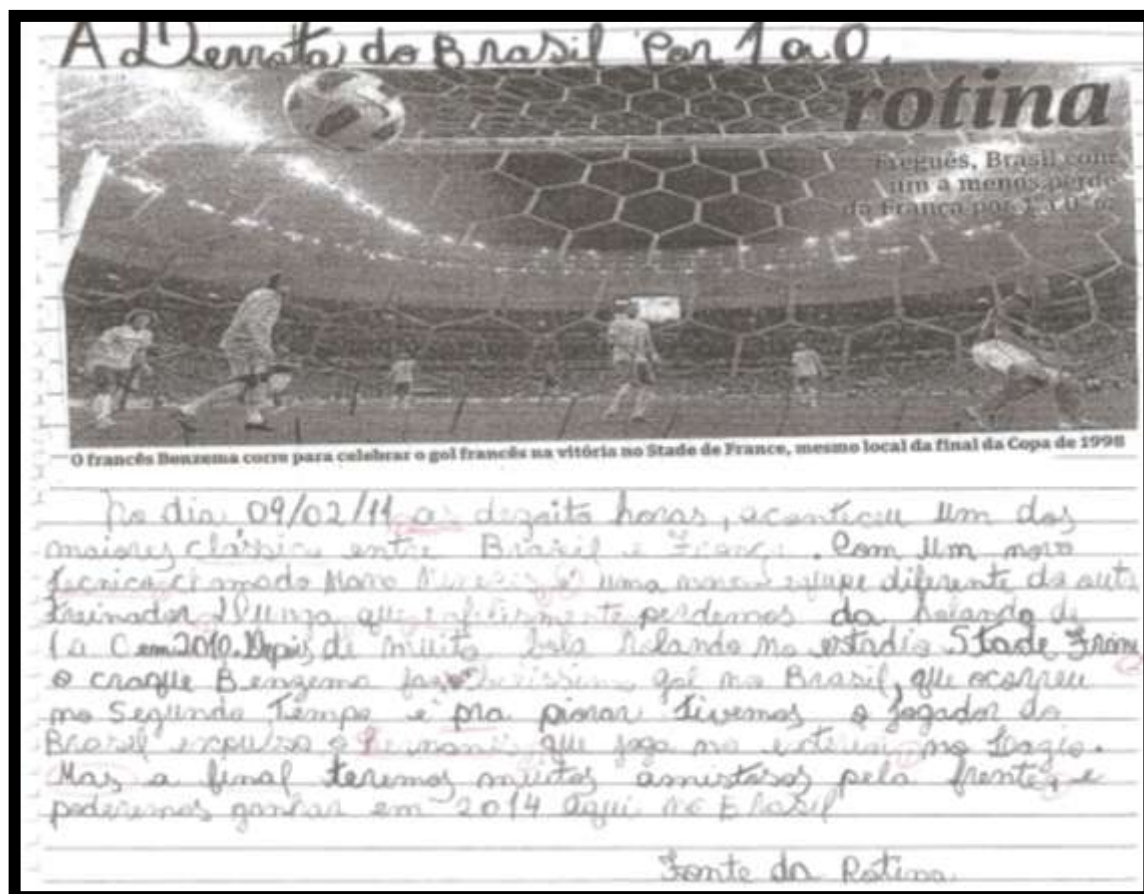 A Derrota do Brasil Por 1 a 0.
rotina
Freguês, Brasil com
um a menos perde
da França por 1 a 0
O francês Benzema corre para celebrar o gol francês na vitória no Stade de France, mesmo local da final da Copa de 1998
No dia 09/02/11 as dezoito horas, aconteceu um dos
maiores clássico entre Brasil e França. Com um novo
tecnico chamado Mano uma nova equipe diferente do
treinador Dunga que infelismente perdemos da holanda de
em 2010. Depois de muita bola rolando no estádio Stade
o craque Benzema gol no Brasil, que ocorreu
no Segundo Tempo e pra piorar tivemos o jogador do
Brasil expulso o que joga no
Mas a final teremos muitos amistosos pela frente, e
poderemos ganhar em 2014 aqui no Brasil
Fonte da Rotina.